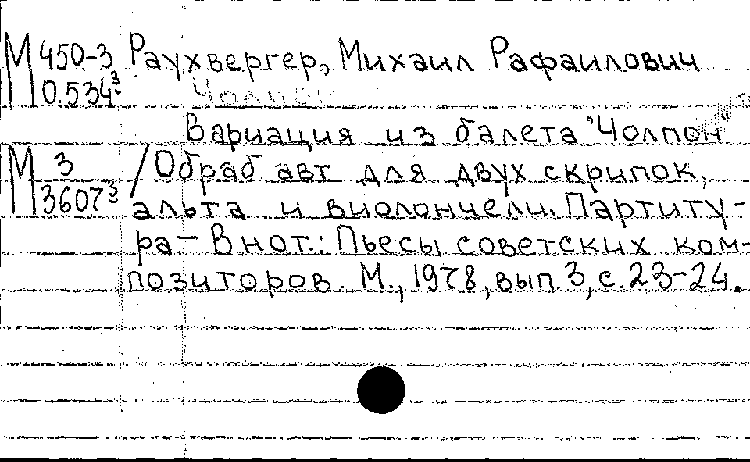 М 450-3 Раухвергер, Михаил Рафаилович
0.534³ Чолпон
Вариация из балета "Чолпон"
М 3 / Обраб авт для двух скрипок,
3607³ альта и виолончели. Партиту-
ра – В нот.: Пьесы советских ком-
позиторов. М., 1978, вып. 3, с. 23-24.